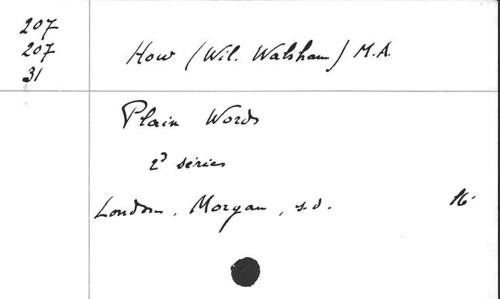 207
207
31
How (Wil. Walsham) M.A.
Plain Words
2ᵈ series
London, Morgan, s.d. 16.